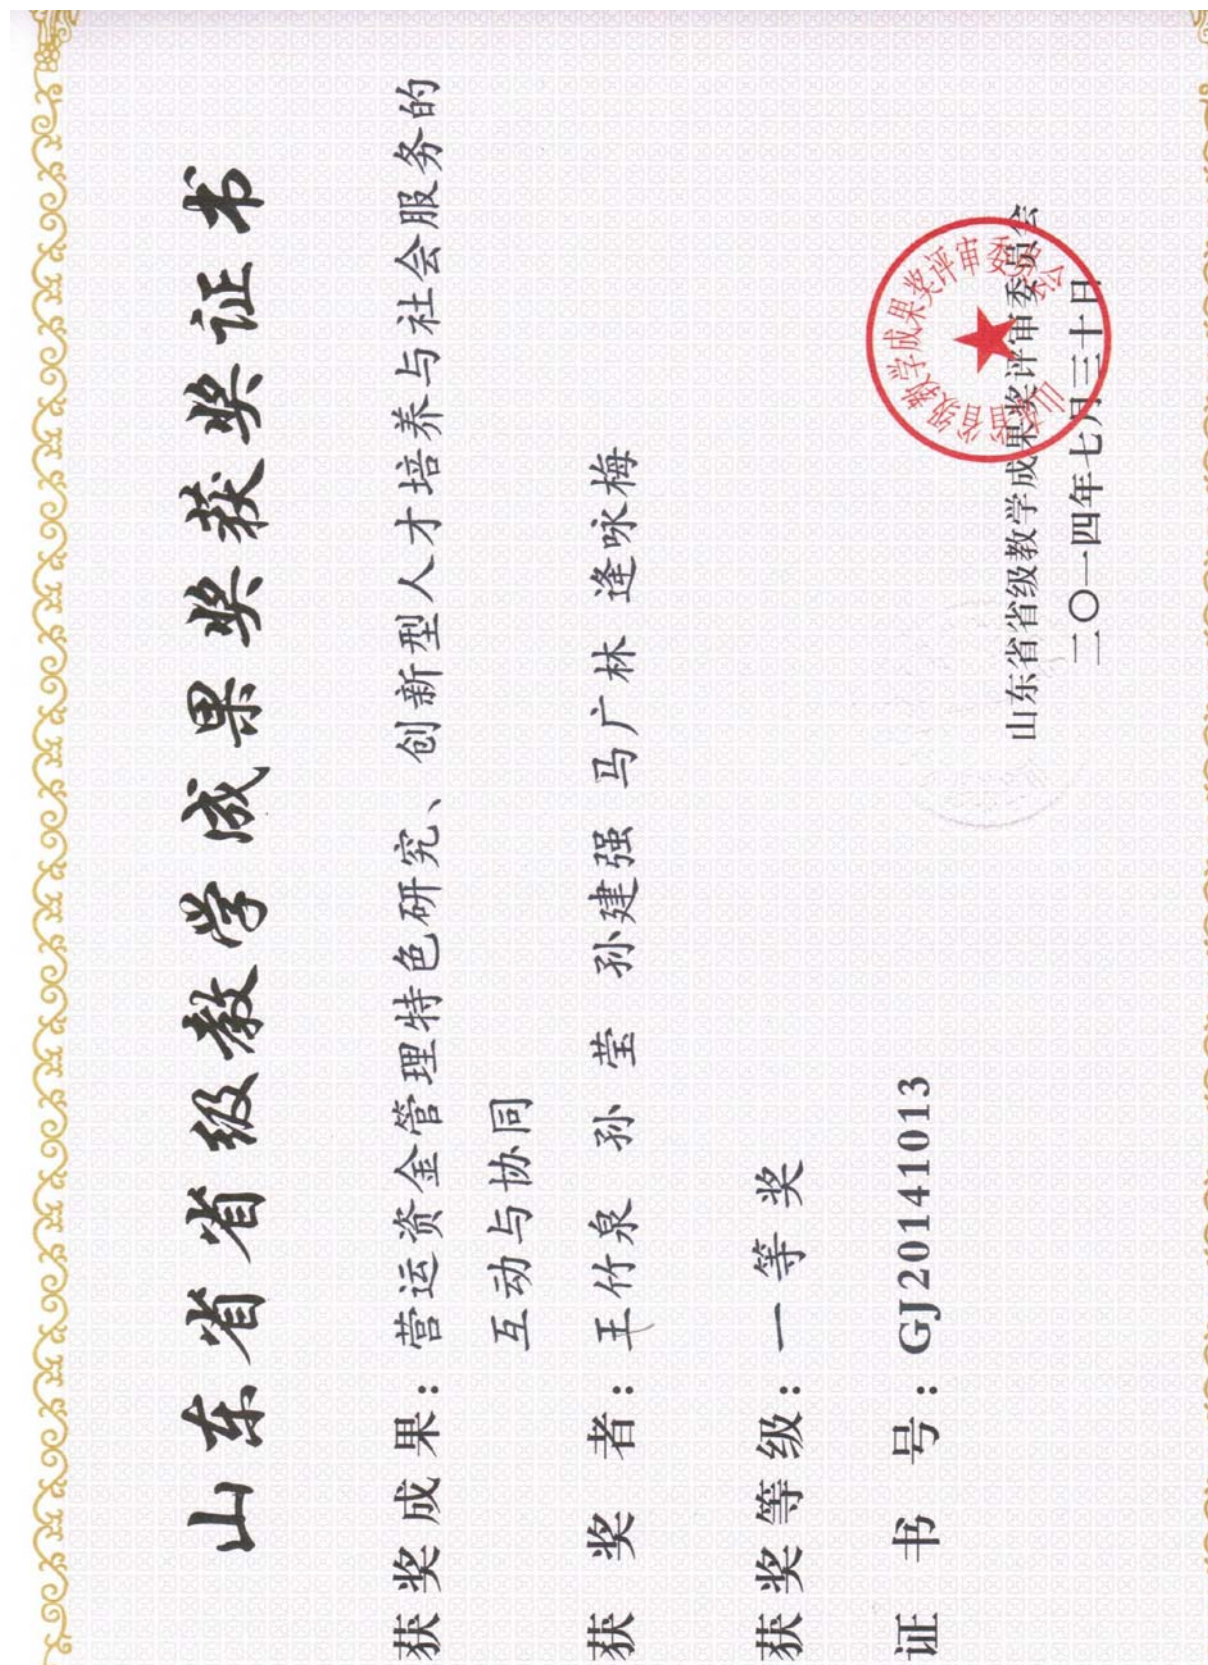 山东省省级教学成果奖获奖证书
获奖成果:营运资金管理特色研究、创新型人才培养与社会服务的
互动与协同
获奖者:王竹泉 孙莹 孙建强 马广林 逄咏梅
获奖等级:一等奖
证书号:GJ20141013
山东省省级教学成果奖评审委员会
二〇一四年七月三十日
山东省省级教学成果奖评审委员会